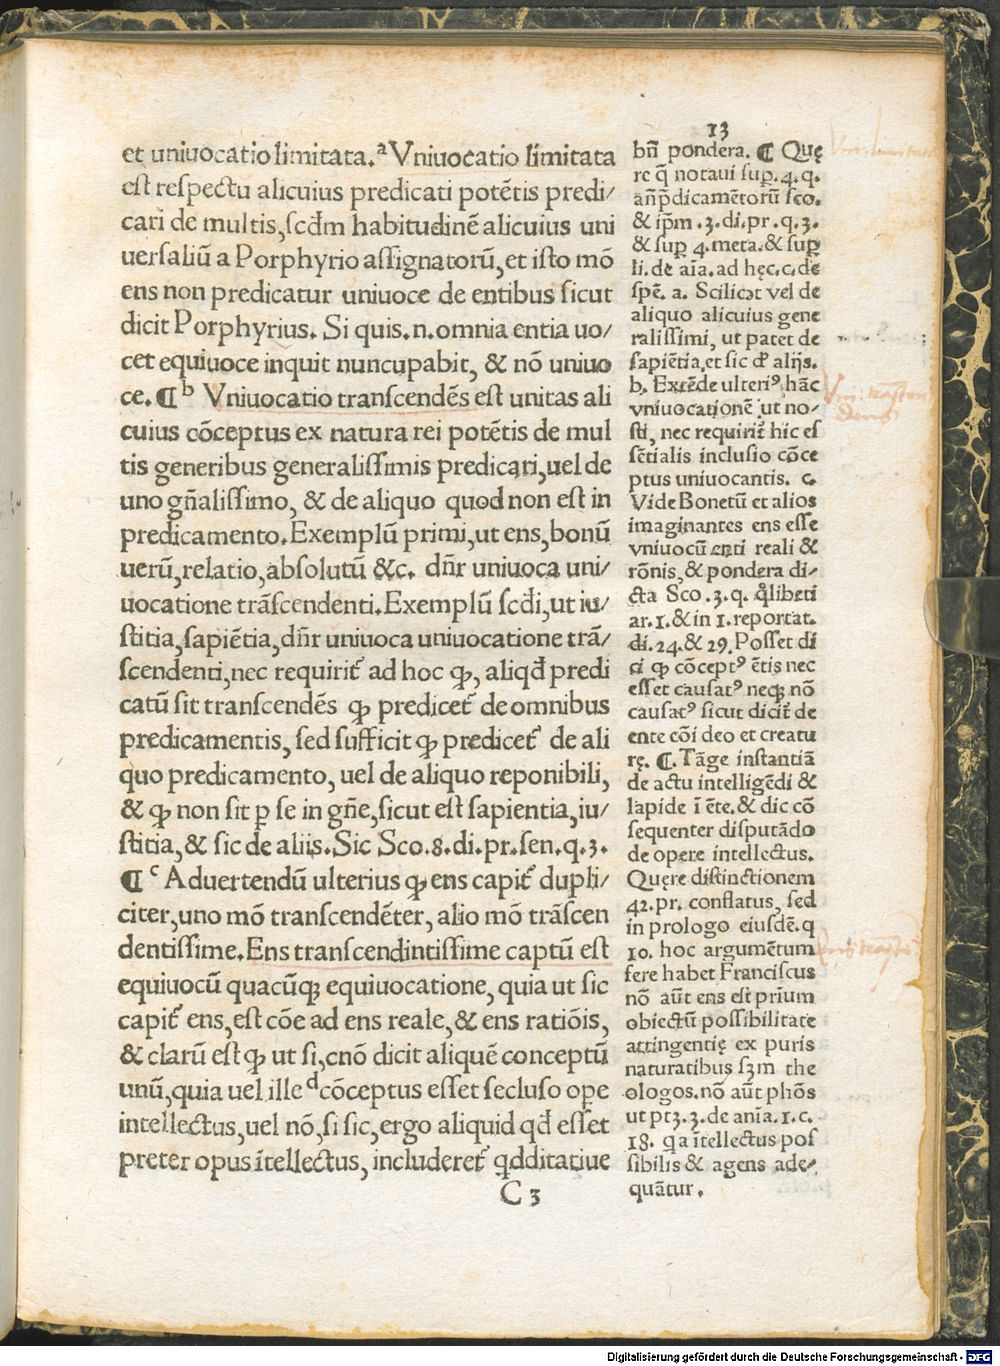 13
et uniuocatio limitata.ª Vniuocatio limitata
est respectu alicuius predicati potētis predi/
cari de multis, scđm habitudinē alicuius uni
uersaliū a Porphyrio assignatorū, et isto mō
ens non predicatur uniuoce de entibus sicut
dicit Porphyrius. Si quis .n. omnia entia uo/
cet equiuoce inquit nuncupabit, & nō uniuo
ce. ¶ b Vniuocatio transcendēs est unitas ali
cuius cōceptus ex natura rei potētis de mul
tis generibus generalissimis predicari, uel de
uno gñalissimo, & de aliquo quod non est in
predicamento. Exemplū primi, ut ens, bonū
uerū, relatio, absolutū &c. dñr uniuoca uni/
uocatione trāscendenti. Exemplū scđi, ut iu/
stitia, sapiētia, dñr uniuoca uniuocatione trā/
scendenti, nec requirit᷑ ad hoc ꝙ, aliqđ predi
catū sit transcendēs ꝙ predicet᷑ de omnibus
predicamentis, sed sufficit ꝙ predicet᷑ de ali
quo predicamento, uel de aliquo reponibili,
& ꝙ non sit ꝑ se in gñe, sicut est sapientia, iu/
stitia, & sic de aliis. Sic Sco. 8. di. pr. sen. q. 3.
¶ c Aduertendū ulterius ꝙ ens capit᷑ dupli/
citer, uno mō transcendēter, alio mō trāscen
dentissime. Ens transcendintissime captū est
equiuocū quacūqꝫ equiuocatione, quia ut sic
capit᷑ ens, est cōe ad ens reale, & ens ratiōis,
& clarū est ꝙ ut si, cnō dicit aliquē conceptū
unū, quia uel ille d cōceptus esset secluso ope
intellectus, uel nō, si sic, ergo aliquid qđ esset
preter opus ītellectus, includeret᷑ q̄dditatiue
C 3
bñ pondera. ¶ Quę
re q̄ notaui suꝑ. 4. q.
añp̄dicamētorū sco.
& ip̄m .3. di. pr. q. 3.
& suꝑ 4. meta. & suꝑ
li. de aīa. ad hęc. c. de
spē. a. Scilicet vel de
aliquo alicuius gene
ralissimi, ut patet de
sapiētia, et sic đ alijs.
b. Extēde ulteriꝰ hāc
vniuocationē ut no/
sti, nec requirit᷑ hic es
sētialis inclusio cōce
ptus uniuocantis. c.
Vide Bonetū et alios
imaginantes ens esse
vniuocū enti reali &
rōnis, & pondera di/
cta Sco .3. q. q̊libeti
ar. 1. & in 1. reportat.
di. 24. & 29. Posset di
ci ꝙ cōceptꝰ ētis nec
esset causatꝰ neqꝫ nō
causatꝰ sicut dicit᷑ de
ente cōi deo et creatu
rę. ¶. Tāge instantiā
de actu intelligēdi &
lapide ī ēte. & dic cō
sequenter disputādo
de opere intellectus.
Quęre distinctionem
42. pr. conflatus, sed
in prologo eiusdē. q
10. hoc argumētum
fere habet Franciscus
nō aūt ens est prīum
obiectū possibilitate
attingentię ex puris
naturatibus sꝫm the
ologos. nō aūt phōs
ut ptꝫ. 3. de anīa. 1. c.
18. q̄a ītellectus pos
sibilis & agens ade/
quātur.
Digitalisierung gefördert durch die Deutsche Forschungsgemeinschaft - DFG